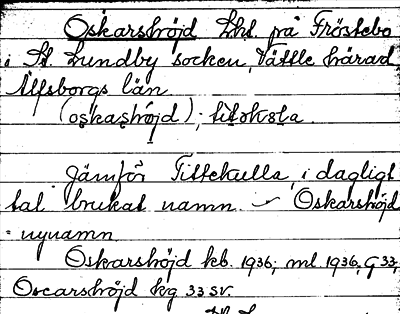 Oskarshöjd Lht. på Fröstebo
i St. Lundby socken, Vättle härad
Älfsborgs län
(oskashöjd);
Jämför Tittekulla, i dagligt
tal brukat namn – Oskarshöjd
= nynamn
Oskarshöjd kb. 1936; ml. 1936, G 33,
Oscarshöjd kg 33 sv.